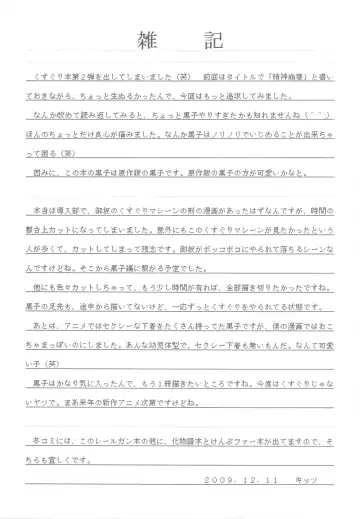 雑　記
くすぐり本第2弾を出してしまいました（笑）　前回はタイトルで「精神崩壊」と書い
ておきながら、ちょっと生ぬるかったんで、今回はもっと追求してみました。
なんか改めて読み返してみると、ちょっと黒子やりすぎたかも知れませんね（＾＾；）
ほんのちょっとだけ良心が痛みました。なんか黒子はノリノリでいじめることが出来ちゃ
って困る（笑）
因みに、この本の黒子は原作版の黒子です。原作版の黒子の方が可愛いかなと。
本当は導入部で、御坂のくすぐりマシーンの刑の漫画があったはずなんですが、時間の
都合上カットになってしまいました。意外にもこのくすぐりマシーンが見たかったという
人が多くて、カットしてしまって残念です。御坂がボッコボコにやられて落ちるシーンな
んですけどね。そこから黒子編に繋がる予定でした。
他にも色々カットしちゃって、もう少し時間が有れば、全部描き切りたかったですね。
黒子の足先も、途中から描いてないけど、一応ずっとくすぐりをやられてる状態です。
あとは、アニメではセクシーな下着をたくさん持ってた黒子ですが、僕の漫画ではおこ
ちゃまっぽいのにしました。あんな幼児体型で、セクシー下着も無いもんだ。なんて可愛
い子（笑）
黒子はかなり気に入ったんで、もう１冊描きたいところですね。今度はくすぐりじゃな
いヤツで。まあ来年の新作アニメ次第ですけどね。
冬コミには、このレールガン本の他に、化物語本とけんぷファー本が出てますので、そ
ちらも宜しくです。
２００９．１２．１１　　キッツ